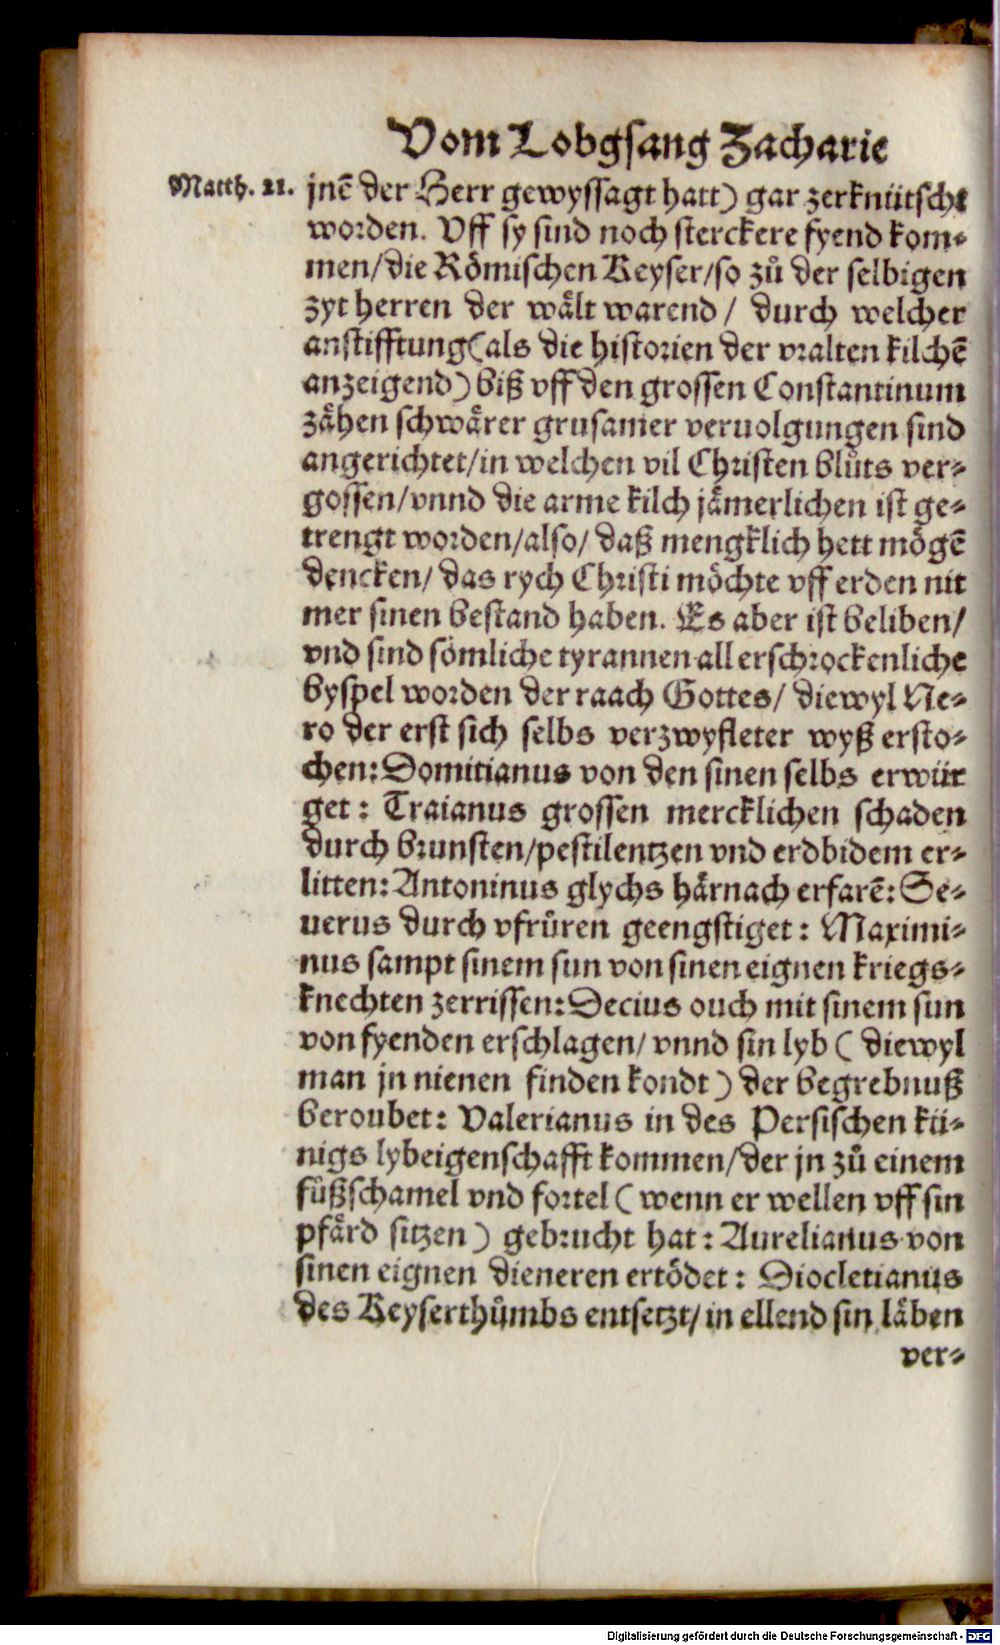 Vom Lobgsang Zacharie
Matth. 21. jnē der Herr gewyssagt hatt) gar zerknütscht
worden. Uff sy sind noch sterckere fyend kom⸗
men/die Römischen Keyser/so zů der selbigen
zyt herren der wält warend / durch welcher
anstifftung(als die historien der vralten kilchē
anzeigend) biß vff den grossen Constantinum
zähen schwärer grusamer veruolgungen sind
angerichtet/in welchen vil Christen blůts ver⸗
gossen/vnnd die arme kilch jämerlichen ist ge⸗
trengt worden/also/ daß mengklich hett mögē
dencken/ das rych Christi möchte vff erden nit
mer sinen bestand haben. Es aber ist beliben/
vnd sind sömliche tyrannen all erschrockenliche
byspel worden der raach Gottes/ diewyl Ne⸗
ro der erst sich selbs verzwyfleter wyß ersto⸗
chen: Domitianus von den sinen selbs erwür
get : Traianus grossen mercklichen schaden
durch brunsten/pestilentzen vnd erdbidem er⸗
litten: Antoninus glychs härnach erfarē: Se⸗
uerus durch vfrůren geengstiget : Maximi⸗
nus sampt sinem sun von sinen eignen kriegs⸗
knechten zerrissen: Decius ouch mit sinem sun
von fyenden erschlagen/ vnnd sin lyb ( diewyl
man jn nienen finden kondt ) der begrebnuß
beroubet : Valerianus in des Persischen kü⸗
nigs lybeigenschafft kommen/der jn zů einem
fůßschamel vnd fortel ( wenn er wellen vff sin
pfärd sitzen ) gebrucht hat : Aurelianus von
sinen eignen dieneren ertödet : Diocletianus
des Keyserthůmbs entsetzt/ in ellend sin läben
ver⸗
Digitalisierung gefördert durch die Deutsche Forschungsgemeinschaft - DFG